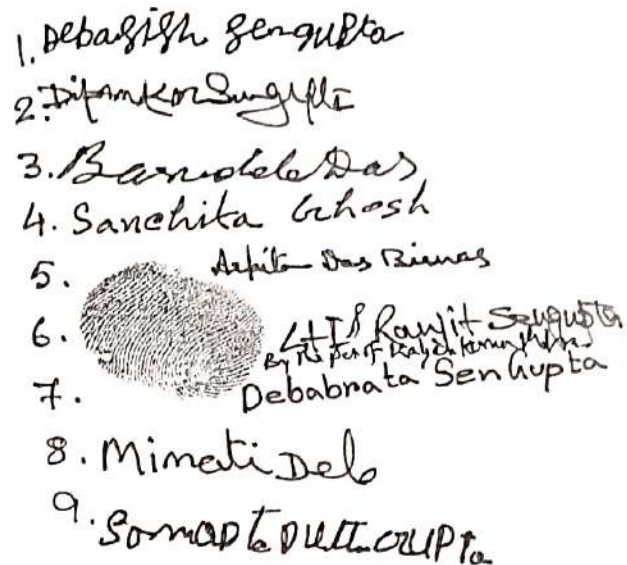 1. Debasish Sengupta
2. Dipankar Sengupta
3. Das
4. Sanchita Ghosh
5. Arpita Das Biswas
6. LTI of Ranjit Sengupta
By the pen of
7. Debabrata SenGupta
8. Minati Deb
9. Somapta DuttaGupta